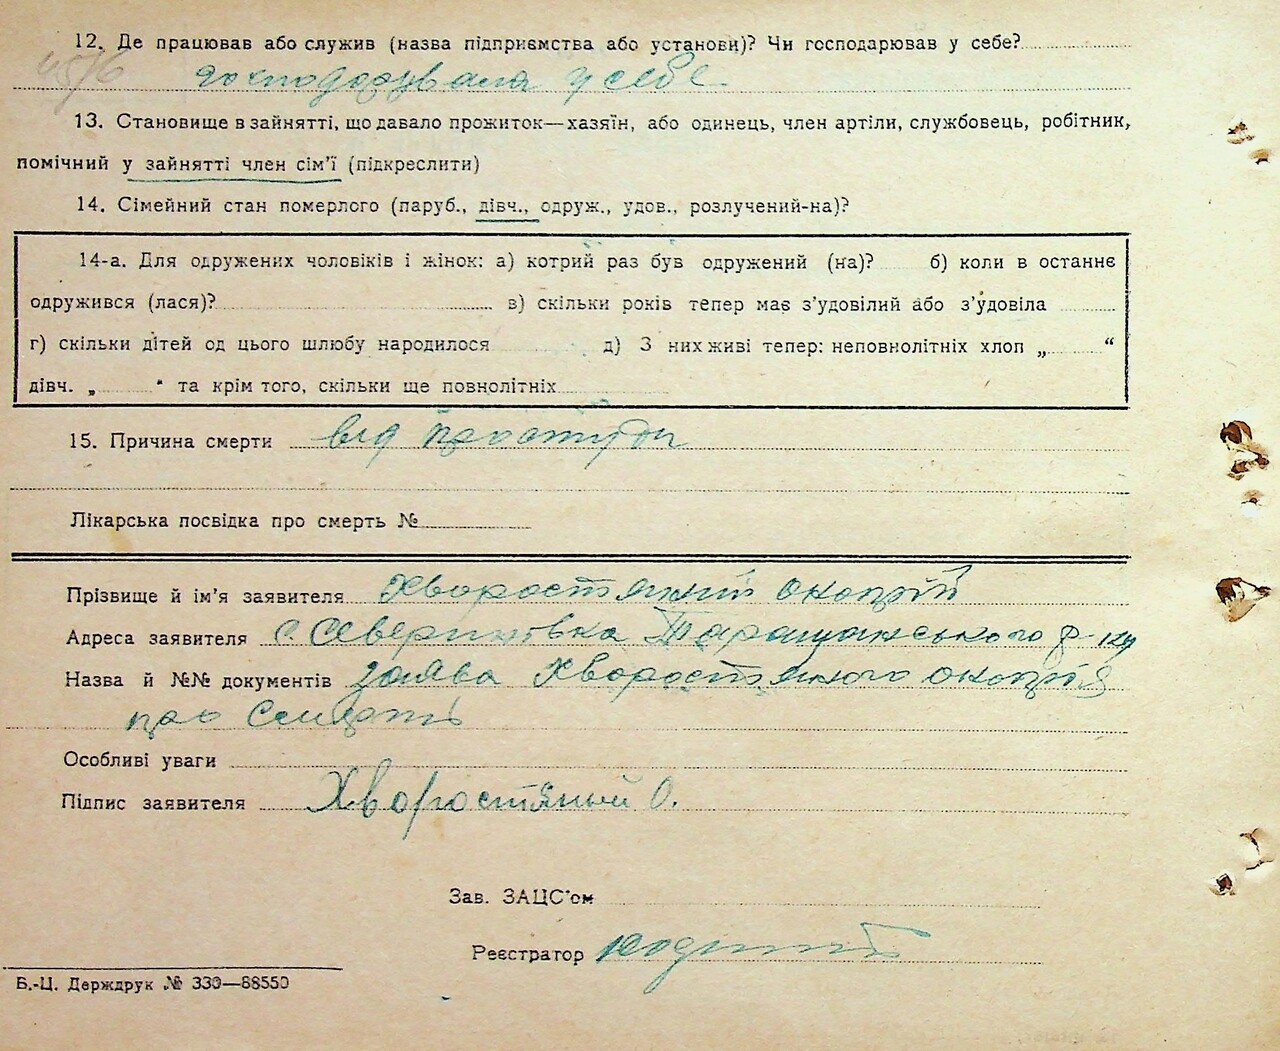 12. Де працював або служив (назва підприємства або установи)? Чи господарював у себе?
господарувала у себе
13. Становище в зайнятті, що давало прожиток—хазяїн, або одинець, член артіли, службовець, робітник,
помічний у зайнятті член сім’ї (підкреслити)
14. Сімейний стан померлого (паруб., дівч., одруж., удов., розлучений-на)?
14-а. Для одружених чоловіків і жінок: а) котрий раз був одружений (на)? б) коли в останнє
одружився (лася)? в) скільки років тепер має з’удовілий або з’удовіла
г) скільки дітей од цього шлюбу народилося д) З них живі тепер: неповнолітніх хлоп „ “
дівч. „ “ та крім того, скільки ще повнолітніх
15. Причина смерти від простуди
Лікарська посвідка про смерть №
Прізвище й ім’я заявителя Хворостяний Окопрій
Адреса заявителя с. Северинівка Таращанського р-ну
Назва й №№ документів заява Хворостяного Окопрія
про смерть
Особливі уваги
Підпис заявителя Хворостяный О.
Зав. ЗАЦС’ом
Реєстратор
Б.-Ц. Держдрук № 330—88550